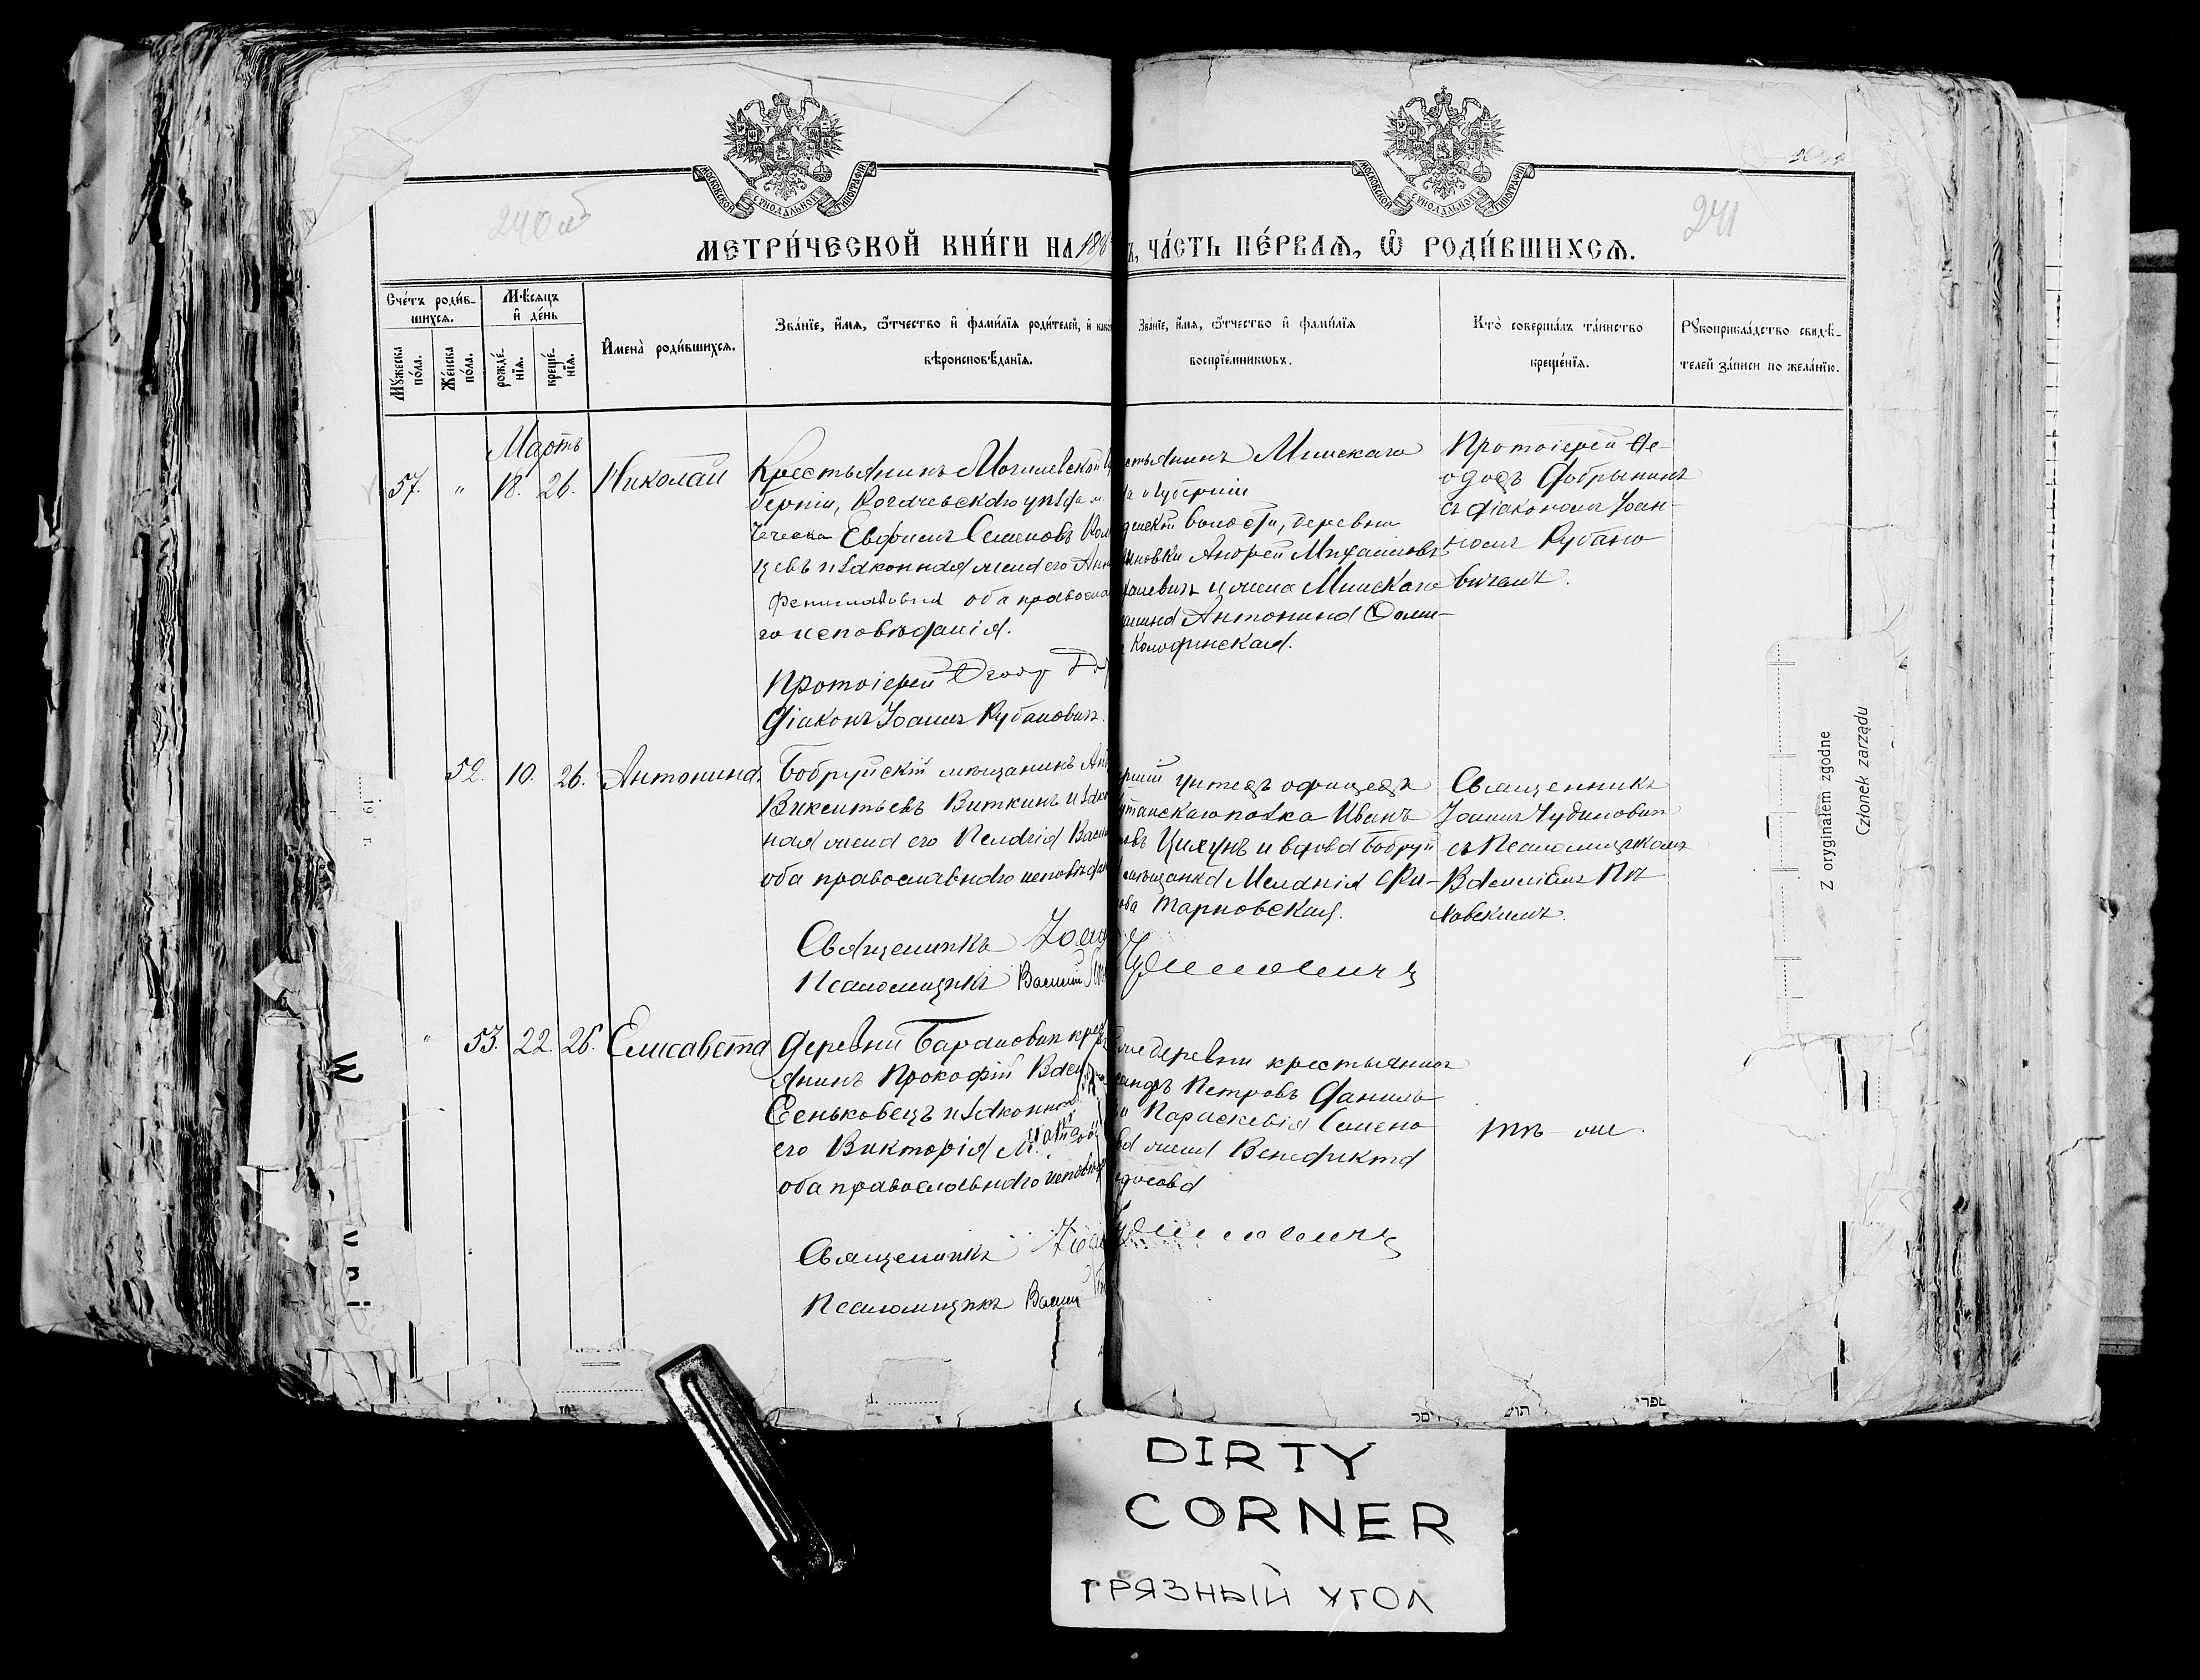 МОСКОВСКОЙ СѴНОДАЛЬНОЙ ТИПОГРАФІИ
МОСКОВСКОЙ СѴНОДАЛЬНОЙ ТИПОГРАФІИ
240 об
241
МЕТРИ́ЧЕСКОЙ КНИ́ГИ НА 188
Ъ, ЧА́СТЬ ПЕ́РВАѦ, Ѽ РОДИ́ВШИХСѦ.
Сче́тъ роди́в-
шихся.
Мꙋ́жеска по́ла.
Же́нска по́ла.
Мѣ́сяцъ и де́нь
рожде́-нїя.
креще́-нїя.
И҆мена̀ роди́вшихся.
Зва́нїе, и҆́мя, ѻ҆́тчество и҆ фами́лїя роди́телей, и҆ како
вѣроисповѣ́данїя.
Зва́нїе, и҆́мя, ѻ҆́тчество и҆ фами́лїя
воспрїе́мниковъ.
Кто̀ соверша́лъ та́инство
креще́нїя.
Рꙋкоприкла́дство свидѣ́-
телей за́писи по жела́нїю.
Мартъ
57. " 18. 26. Николай
Крестьянинъ Могилевской Гу
берніи, Рогачевскаго уѣзда м.
Чечерска Евфимъ Семеновъ
цевъ и законная жена его Анн
оба правосла
го исповѣданія.
Протоіерей Ѳеодоръ Доб
Діаконъ Іоаннъ Рубановичъ.
стьянинъ Минскаго
да и губерніи
волости, деревни
новки Андрей Михаиловъ
и жена Минскаго
щанина Антонина
Колодинская.
Протоіерей Ѳе-
одоръ Добрынинъ
съ діакономъ Іоан-
номъ Рубано
вичемъ.
52. 10. 26. Антонина.
Бобруйскій мѣщанинъ Ант
Викентьевъ Виткинъ и зако
ная жена его Пелагія Васи
оба православнаго исповѣдан
Священникъ Іоанн
Псаломщикъ Василій
унтеръ офицеръ
полка Иванъ
овъ Цихунъ и вдова Бобруй
мѣщанка Меланія
ова Тарновская.
Чудиновичъ
Священникъ
Іоаннъ Чудиновичъ
съ Псаломщикомъ
Василіемъ Пѣ
ловскимъ.
" 53. 22. 26. Елисавета
Деревни Барановичъ крест
янинъ Прокофій Васи
Сеньковецъ и законная
его Викторія
оба православнаго исповѣд
Священникъ Іоан
Псаломщикъ Василій
деревни крестьянинъ
сандръ Петровъ Даниль
и Параскевія Семено
ва жена Венедикта
Чудиновичъ
тѣ-же.
19 г.
Z oryginałem zgodne
Członek zarządu
DIRTY
CORNER
ГРЯЗНЫЙ УГОЛ